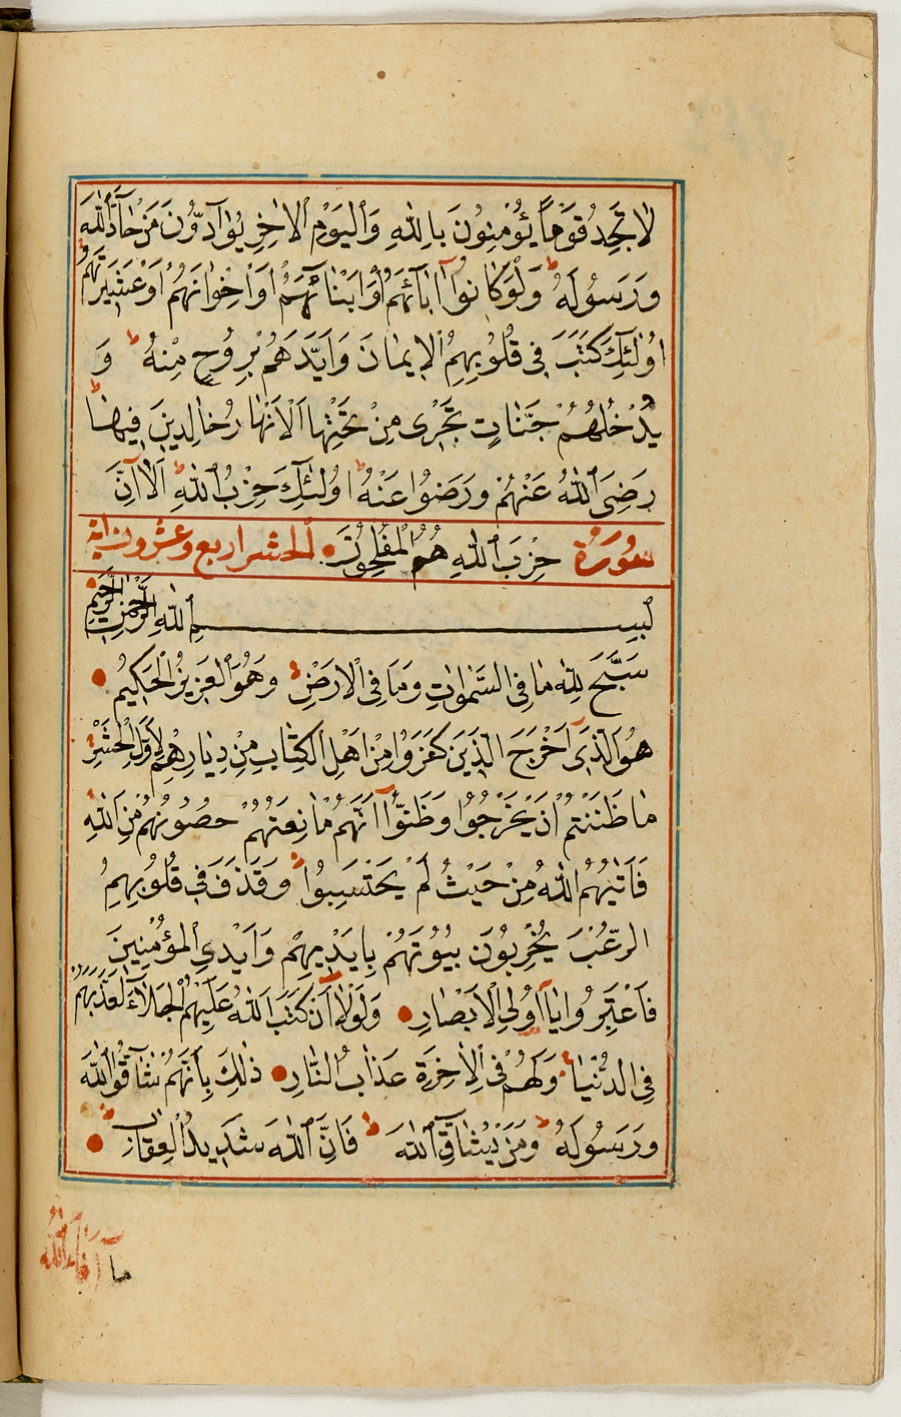 لَا تَجِدُ قَوْمًا يُؤْمِنُونَ بِاللّٰهِ وَالْيَوْمِ الْاٰخِرِ يُوَٓادُّونَ مَنْ حَٓادَّ اللّٰهَ
وَرَسُولَهُ وَلَوْ كَانُوٓا اٰبَآئَهُمْ اَوْ اَبْنَآئَهُمْ اَوْ اِخْوَانَهُمْ اَوْ عَشِيرَتَهُمْ
اُولٰٓئِكَ كَتَبَ فِي قُلُوبِهِمُ الْاِيمَانَ وَاَيَّدَهُمْ بِرُوحٍ مِنْهُ وَ
يُدْخِلُهُمْ جَنَّاتٍ تَجْرِي مِنْ تَحْتِهَا الْاَنْهَارُ خَالِدِينَ فِيهَا
رَضِيَ اللّٰهُ عَنْهُمْ وَرَضُوا عَنْهُ اُولٰٓئِكَ حِزْبُ اللّٰهِ اَلَآ اِنَّ
سُورَةُ حِزْبَ اللّٰهِ هُمُ الْمُفْلِحُونَ الحشر اربع وعشرون اية
بِسْمِ اللّٰهِ الرَّحْمٰنِ الرَّحِيمِ
سَبَّحَ لِلّٰهِ مَا فِي السَّمٰوَاتِ وَمَا فِي الْاَرْضِ وَهُوَ الْعَزِيزُ الْحَكِيمُ
هُوَ الَّذِٓي اَخْرَجَ الَّذِينَ كَفَرُوا مِنْ اَهْلِ الْكِتَابِ مِنْ دِيَارِهِمْ لِاَوَّلِ الْحَشْرِ
مَا ظَنَنْتُمْ اَنْ يَخْرُجُوا وَظَنُّٓوا اَنَّهُمْ مَانِعَتُهُمْ حُصُونُهُمْ مِنَ اللّٰهِ
فَاَتٰيهُمُ اللّٰهُ مِنْ حَيْثُ لَمْ يَحْتَسِبُوا وَقَذَفَ فِي قُلُوبِهِمُ
الرُّعْبَ يُخْرِبُونَ بُيُوتَهُمْ بِاَيْدِيهِمْ وَاَيْدِي الْمُؤْمِنِينَ
فَاعْتَبِرُوا يَٓا اُولِي الْاَبْصَارِ وَلَوْلَٓا اَنْ كَتَبَ اللّٰهُ عَلَيْهِمُ الْجَلَٓاءَ لَعَذَّبَهُمْ
فِي الدُّنْيَا وَلَهُمْ فِي الْاٰخِرَةِ عَذَابُ النَّارِ ذٰلِكَ بِاَنَّهُمْ شَٓاقُّوا اللّٰهَ
وَرَسُولَهُ وَمَنْ يُشَٓاقِّ اللّٰهَ فَاِنَّ اللّٰهَ شَدِيدُ الْعِقَابِ
ما